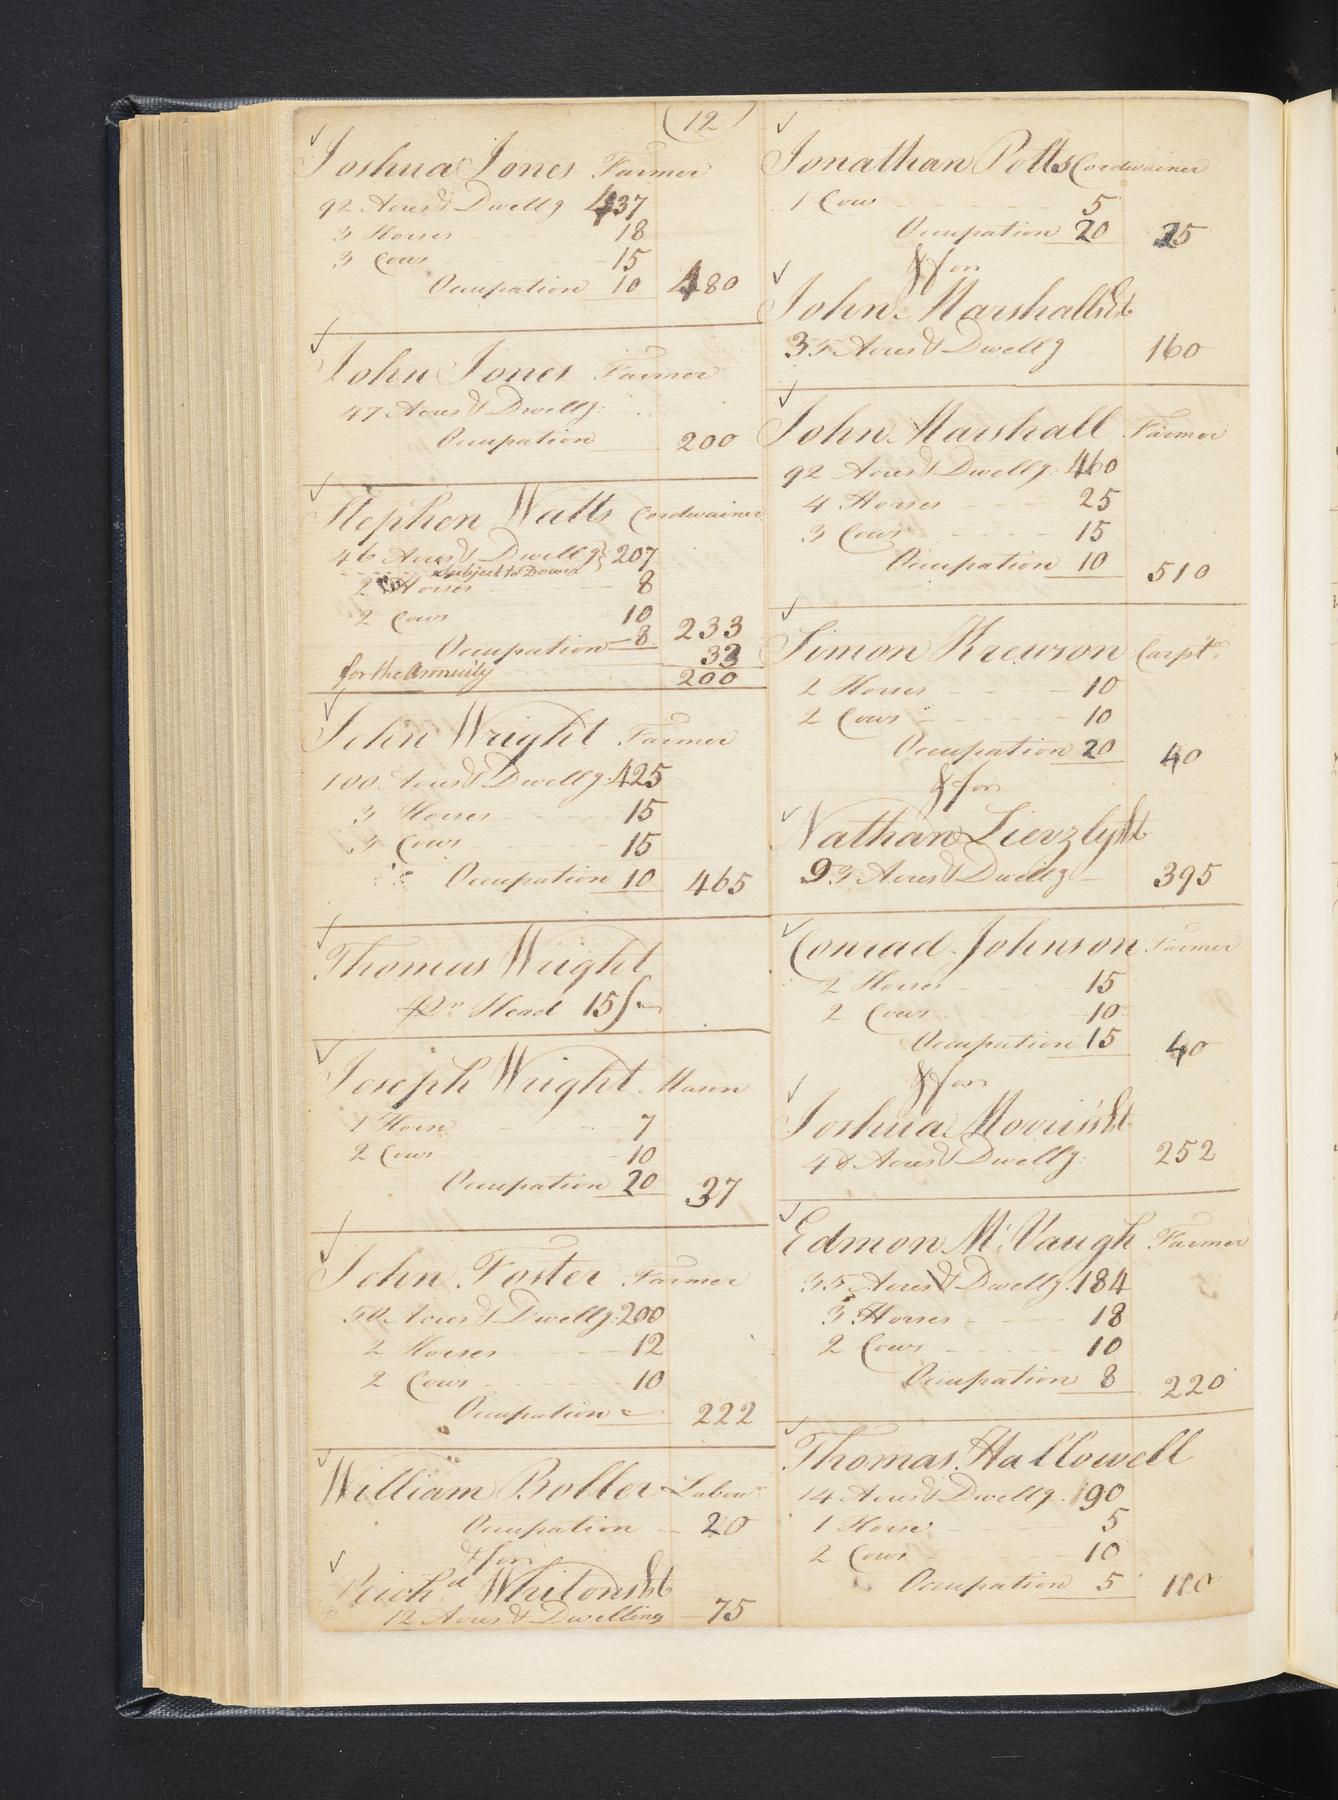 (12)
Joshua Jones Farmer
92 Acres & Dwellg 437
3 Horses 18
3 Cows 15
Occupation 10 480
John Jones Farmer
47 Acres & Dwellg:
Occupation 200
Stephen Watts Cordwainer
46 Acres & Dwellg} 207
Subject to Dower
2 Horses 8
2 Cows 10
Occupation 8 233
33
for the Annuity 200
John Wright Farmer
100 Acres & Dwellg: 425
3 Horses 15
3 Cows 15
Occupation 10 465
Thomas Wright
Head 15/
Joseph Wright Mason
1 Horse 7
2 Cows 10
Occupation 20 37
John Foster Farmer
50 Acres & Dwellg: 200
2 Horses 12
2 Cows 10
Occupation 222
William Boller Labour
Occupation 20
& for
Richd. Whitons Est
12 Acres & Dwelling 75
Jonathan Potts Cordwainer
1 Cow 5
Occupation 20 25
& for
John Marshalls Est
35 Acres & Dwellg 160
John Marshall Farmer
92 Acres & Dwellg: 460
4 Horses 25
3 Cows 15
Occupation 10 510
Simon Krewson Carptr.
2 Horses 10
2 Cows 10
Occupation 20 40
& for
Nathan Lievzlys Est
93 Acres & Dwellg 395
Conrad Johnson Farmer
2 Horses 15
2 Cows 10
Occupation 15 40
& for
Joshua Morris's Est
48 Acres & Dwellg: 252
Edmon Mc.Vaugh Farmer
35 Acres & Dwellg. 184
3 Horses 18
2 Cows 10
Occupation 8 220
Thomas Hallowell
14 Acres & Dwellg. 90
1 Horse 5
2 Cows 10
Occupation 5 110